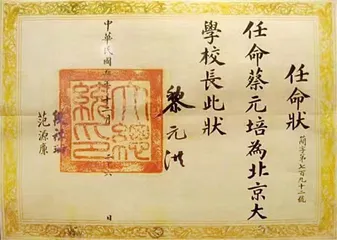 任命狀
簡字第七百九十二號
任命蔡元培為北京大
學校長此狀
黎元洪
大總統印
中華民國五年十二月二十六日
范源廉